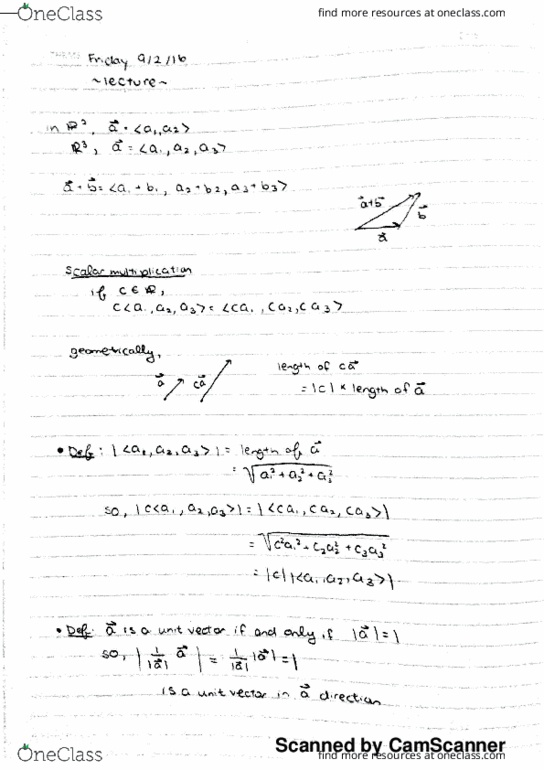 OneClass
find more resources at oneclass.com
Friday 9/2/16
~lecture~
in ℝ², a⃗ = <a₁, a₂>
ℝ³, a⃗ = <a₁, a₂, a₃>
a⃗ + b⃗ = <a₁ + b₁, a₂ + b₂, a₃ + b₃>
a⃗+b⃗
b⃗
a⃗
Scalar multiplication
if c ∈ ℝ,
c<a₁, a₂, a₃> = <ca₁, ca₂, ca₃>
geometrically,
a⃗ ca⃗
length of ca⃗
= |c| * length of a⃗
• Def: |<a₁, a₂, a₃>| = length of a⃗
= √a₁² + a₂² + a₃²
so, |c<a₁, a₂, a₃>| = |<ca₁, ca₂, ca₃>|
= √c²a₁² + c₂a₂² + c₃a₃²
= |c| |<a₁, a₂, a₃>|
• Def: a⃗ is a unit vector if and only if |a⃗| = 1
so, |1/|a⃗| a⃗| = 1/|a⃗| |a⃗| = 1
is a unit vector in a⃗ direction
Scanned by CamScanner
OneClass
find more resources at oneclass.com